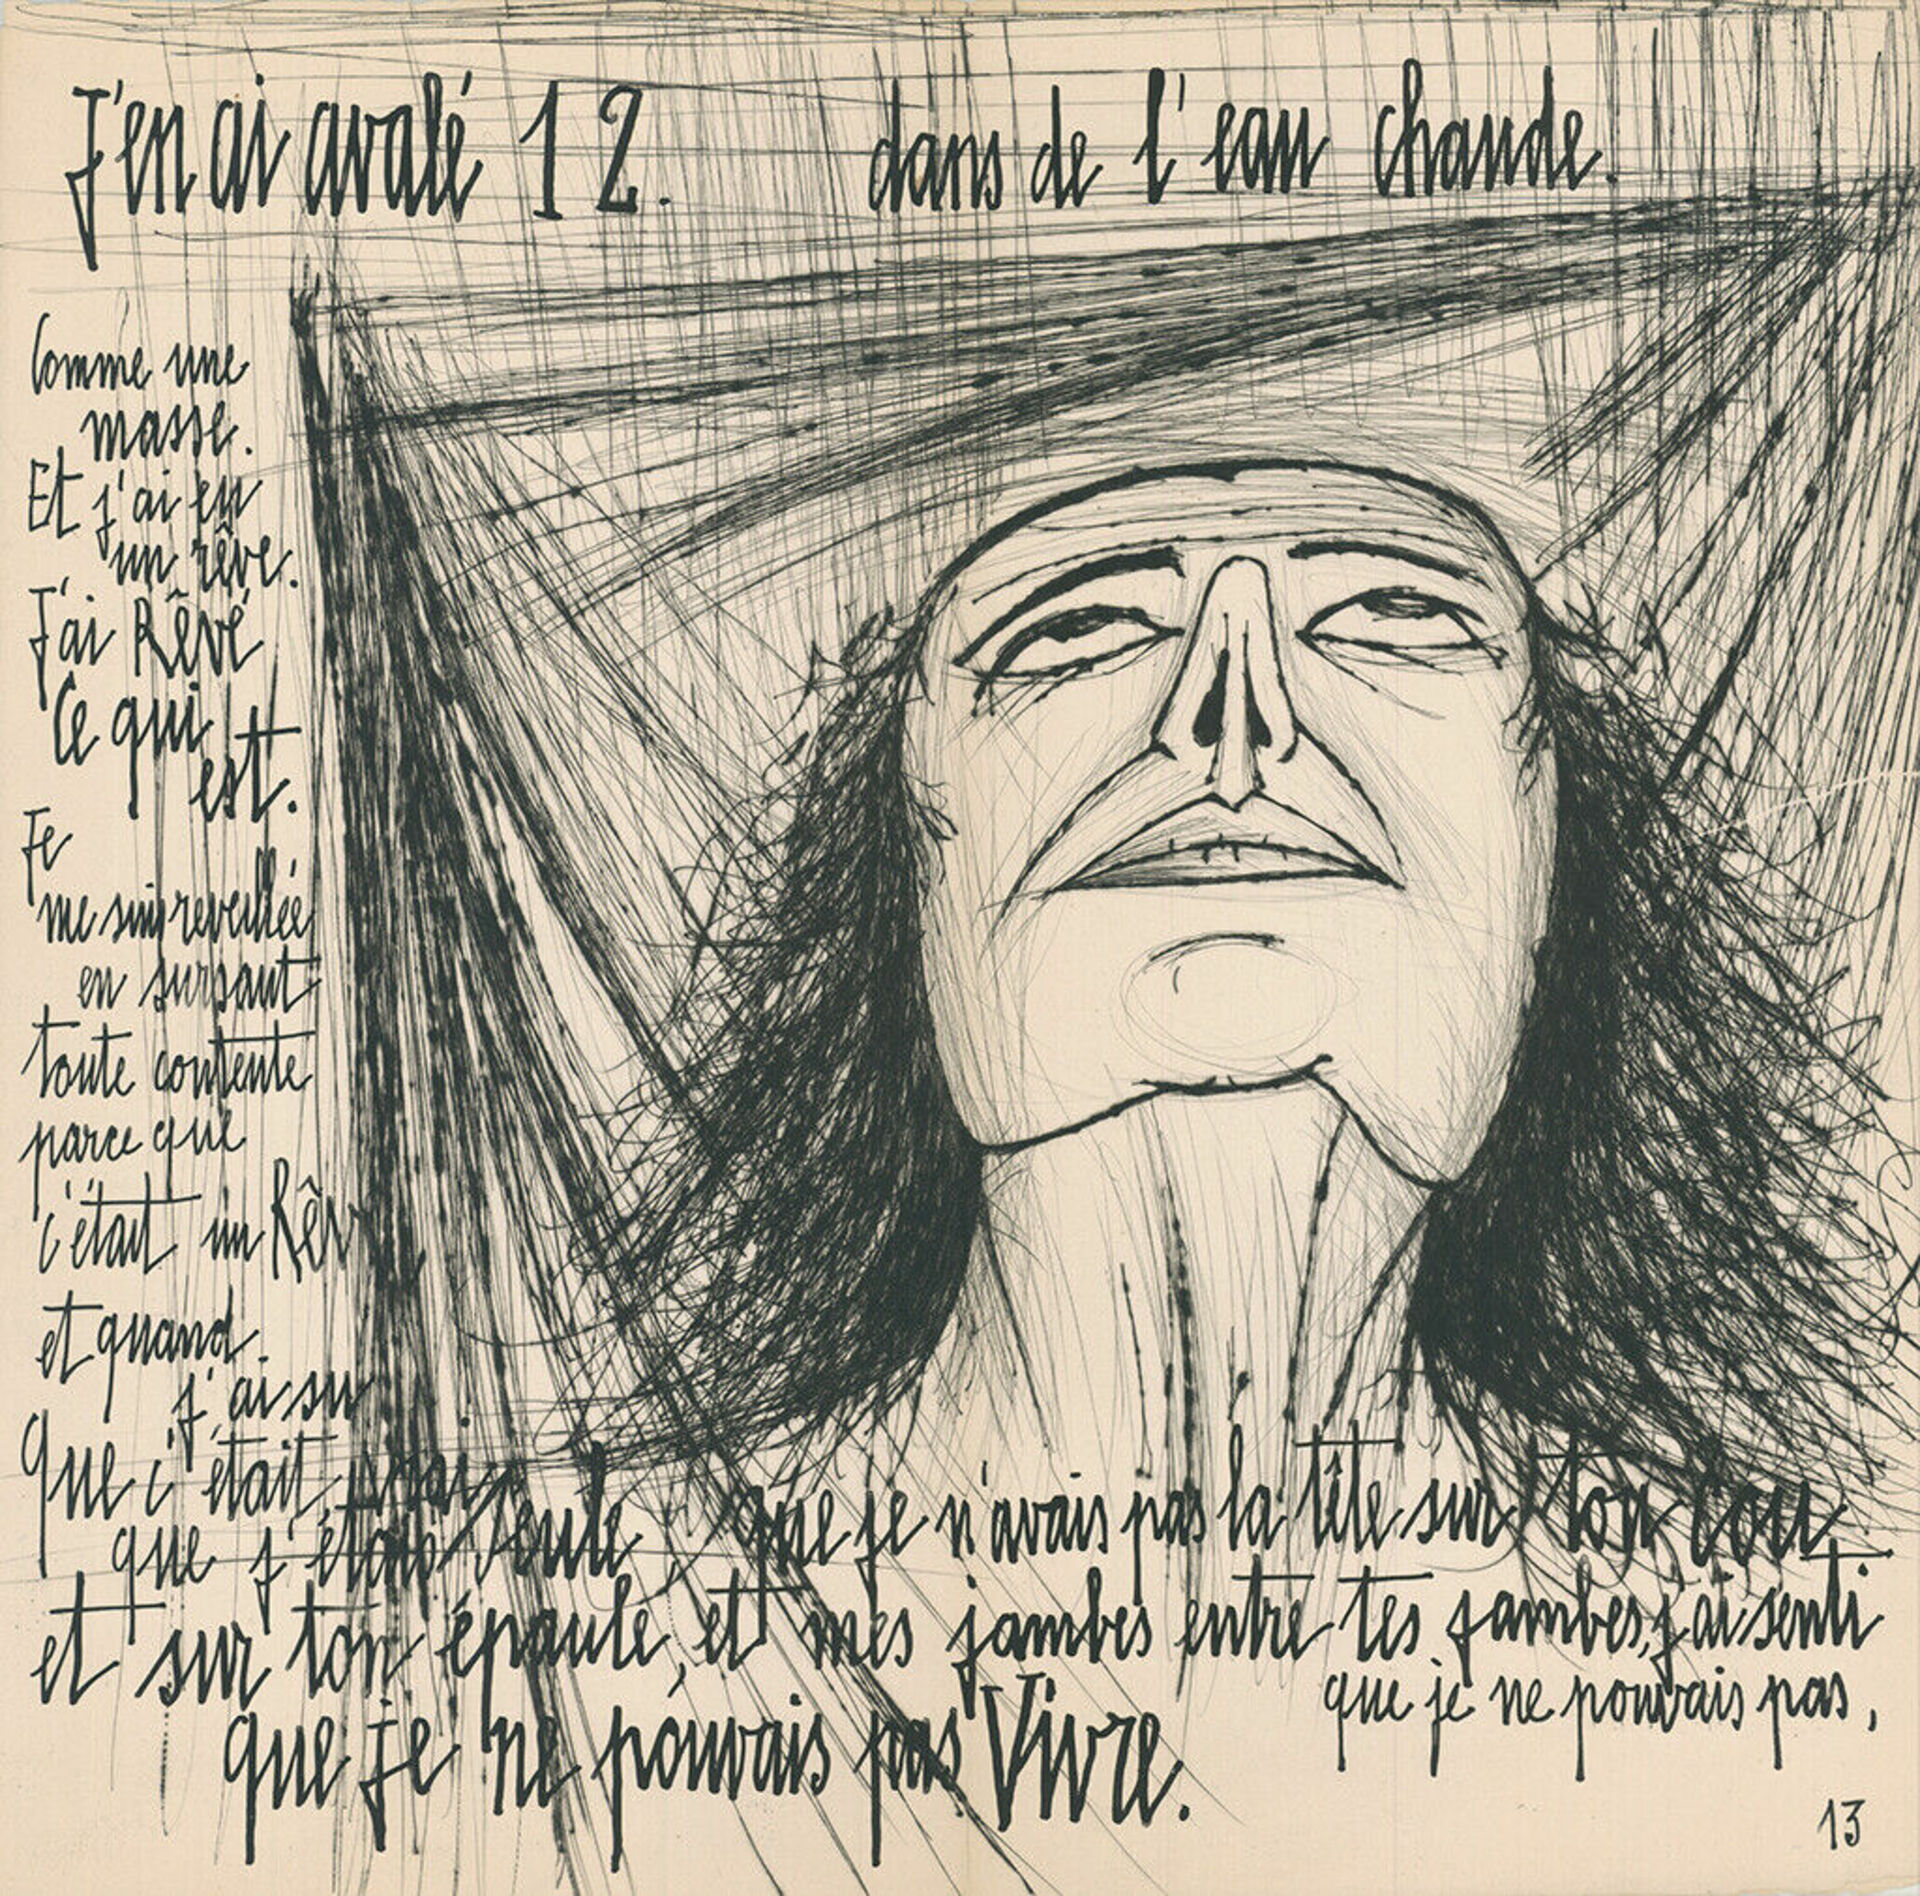 J'en ai avalé 12. dans de l'eau chaude.
Comme une
masse.
Et j'ai eu
un rêve.
J'ai Rêvé
Ce qui
est.
Je
me suis reveillée
en sursaut
toute contente
parce que
c'était un Rêv
et quand
j'ai su
que c'était vrai
que j'étais seule que je n'avais pas la tête sur ton cou
et sur ton épaule, et mes jambes entre tes jambes, j'ai senti
que je ne pouvais pas,
que je ne pouvais pas Vivre.
13